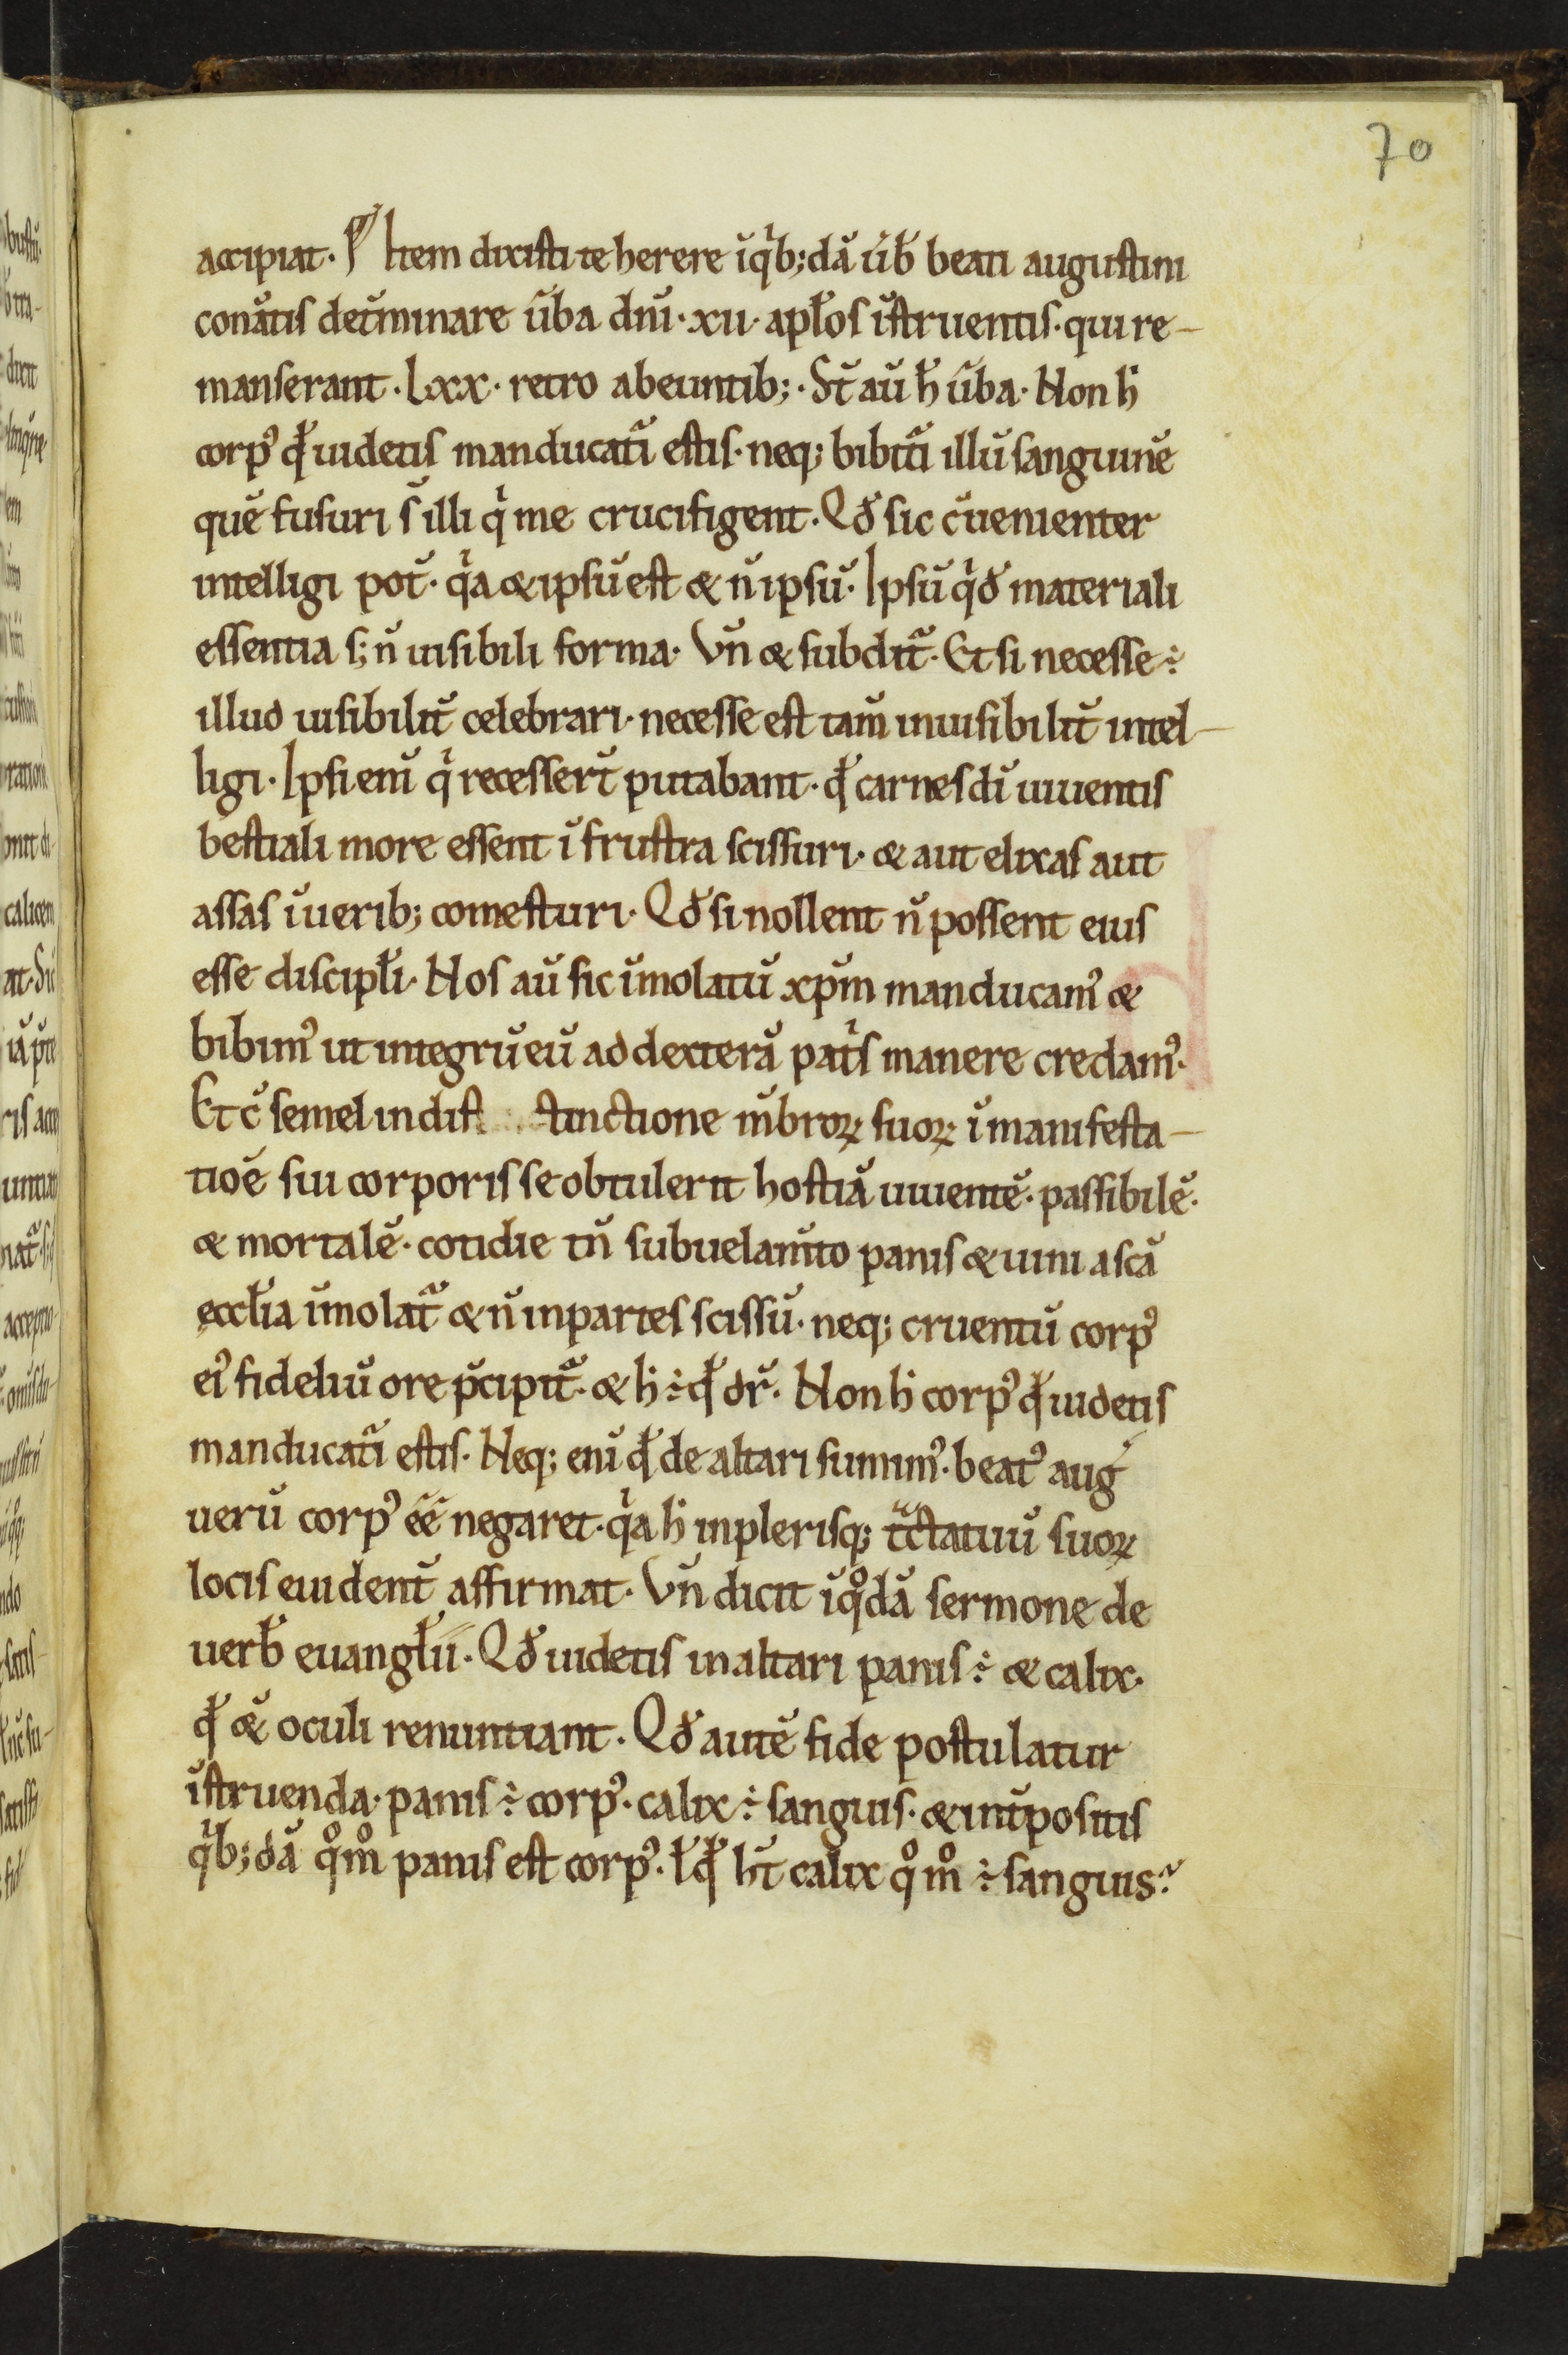 70
accipiat. Item dixisti te herere ī qͥb; dā ūb̄ beati augustini
conātis det̄minare ūba dn̄i. xii. apl̄os īstruentis. qui re-
manserant. Lxx. retro abeuntib;. St̄ aū h̄ ūba. Non h̄
corpꝰ qđ uidetis manducat̄i estis. neq; bibit̄i illū sanguinē
quē fusuri s̄ illi qͥ me crucifigent. Qđ sic c̄uenienter
intelligi pot̄. qͥa & ipsū est & n̄ ipsū. Ipsū qͥđ materiali
essentia s; n̄ uisibili forma. Vn̄ & subdit̄. Et si necesse ÷
illud uisibilit̄ celebrari. necesse est tam̄ inuisibilit̄ intel-
ligi. Ipsi eni̅ qͥ recesser̄t putabant. qđ carnes dn̄i uiuentis
bestiali more essent ī frustra scissuri. & aut elixas aut
assas ī uerib; comesturi. Qđ si nollent n̄ possent eius
esse discipl̄i. Nos aū sic īmolatū xp̄m manducamꝰ &
bibimꝰ ut integrū eū ad dexterā patͥs manere credamꝰ.
Et c̄ semel in dist stinctione m̄broꝝ suoꝝ ī manifesta-
tiōē sui corporis se obtulerit hostiā uiuentē. passibilē.
& mortalē. cotidie tn̄ sub uelam̄to panis & uini a sc̄a
eccl̄ia īmolat̄ & n̄ in partes scissū. neq; cruentū corpꝰ
eiꝰ fideliū ore p̄cipit̄. & h̄ ÷ qđ dr̄. Non h̄ corpꝰ qđ uidetis
manducat̄i estis. Neq; eni̅ qđ de altari sumimꝰ. beatꝰ auḡ
uerū corpꝰ ēē negaret. qͥa h̄ in plerisq; tᷓctatuū suoꝝ
locis euident̄ affirmat. Vn̄ dicit ī qͦdā sermone de
uerb̄ euangl̄ii. Qđ uidetis in altari panis ÷ & calix.
qđ &̄ oculi renuntiant. Qđ autē fide postulatur
īstruenda. panis ÷ corpꝰ. calix ÷ sanguis. & int̄positis
qͥb; dā qͦmͦ panis est corpꝰ. ł qđ ht̄ calix qͦmͦ ÷ sanguis?